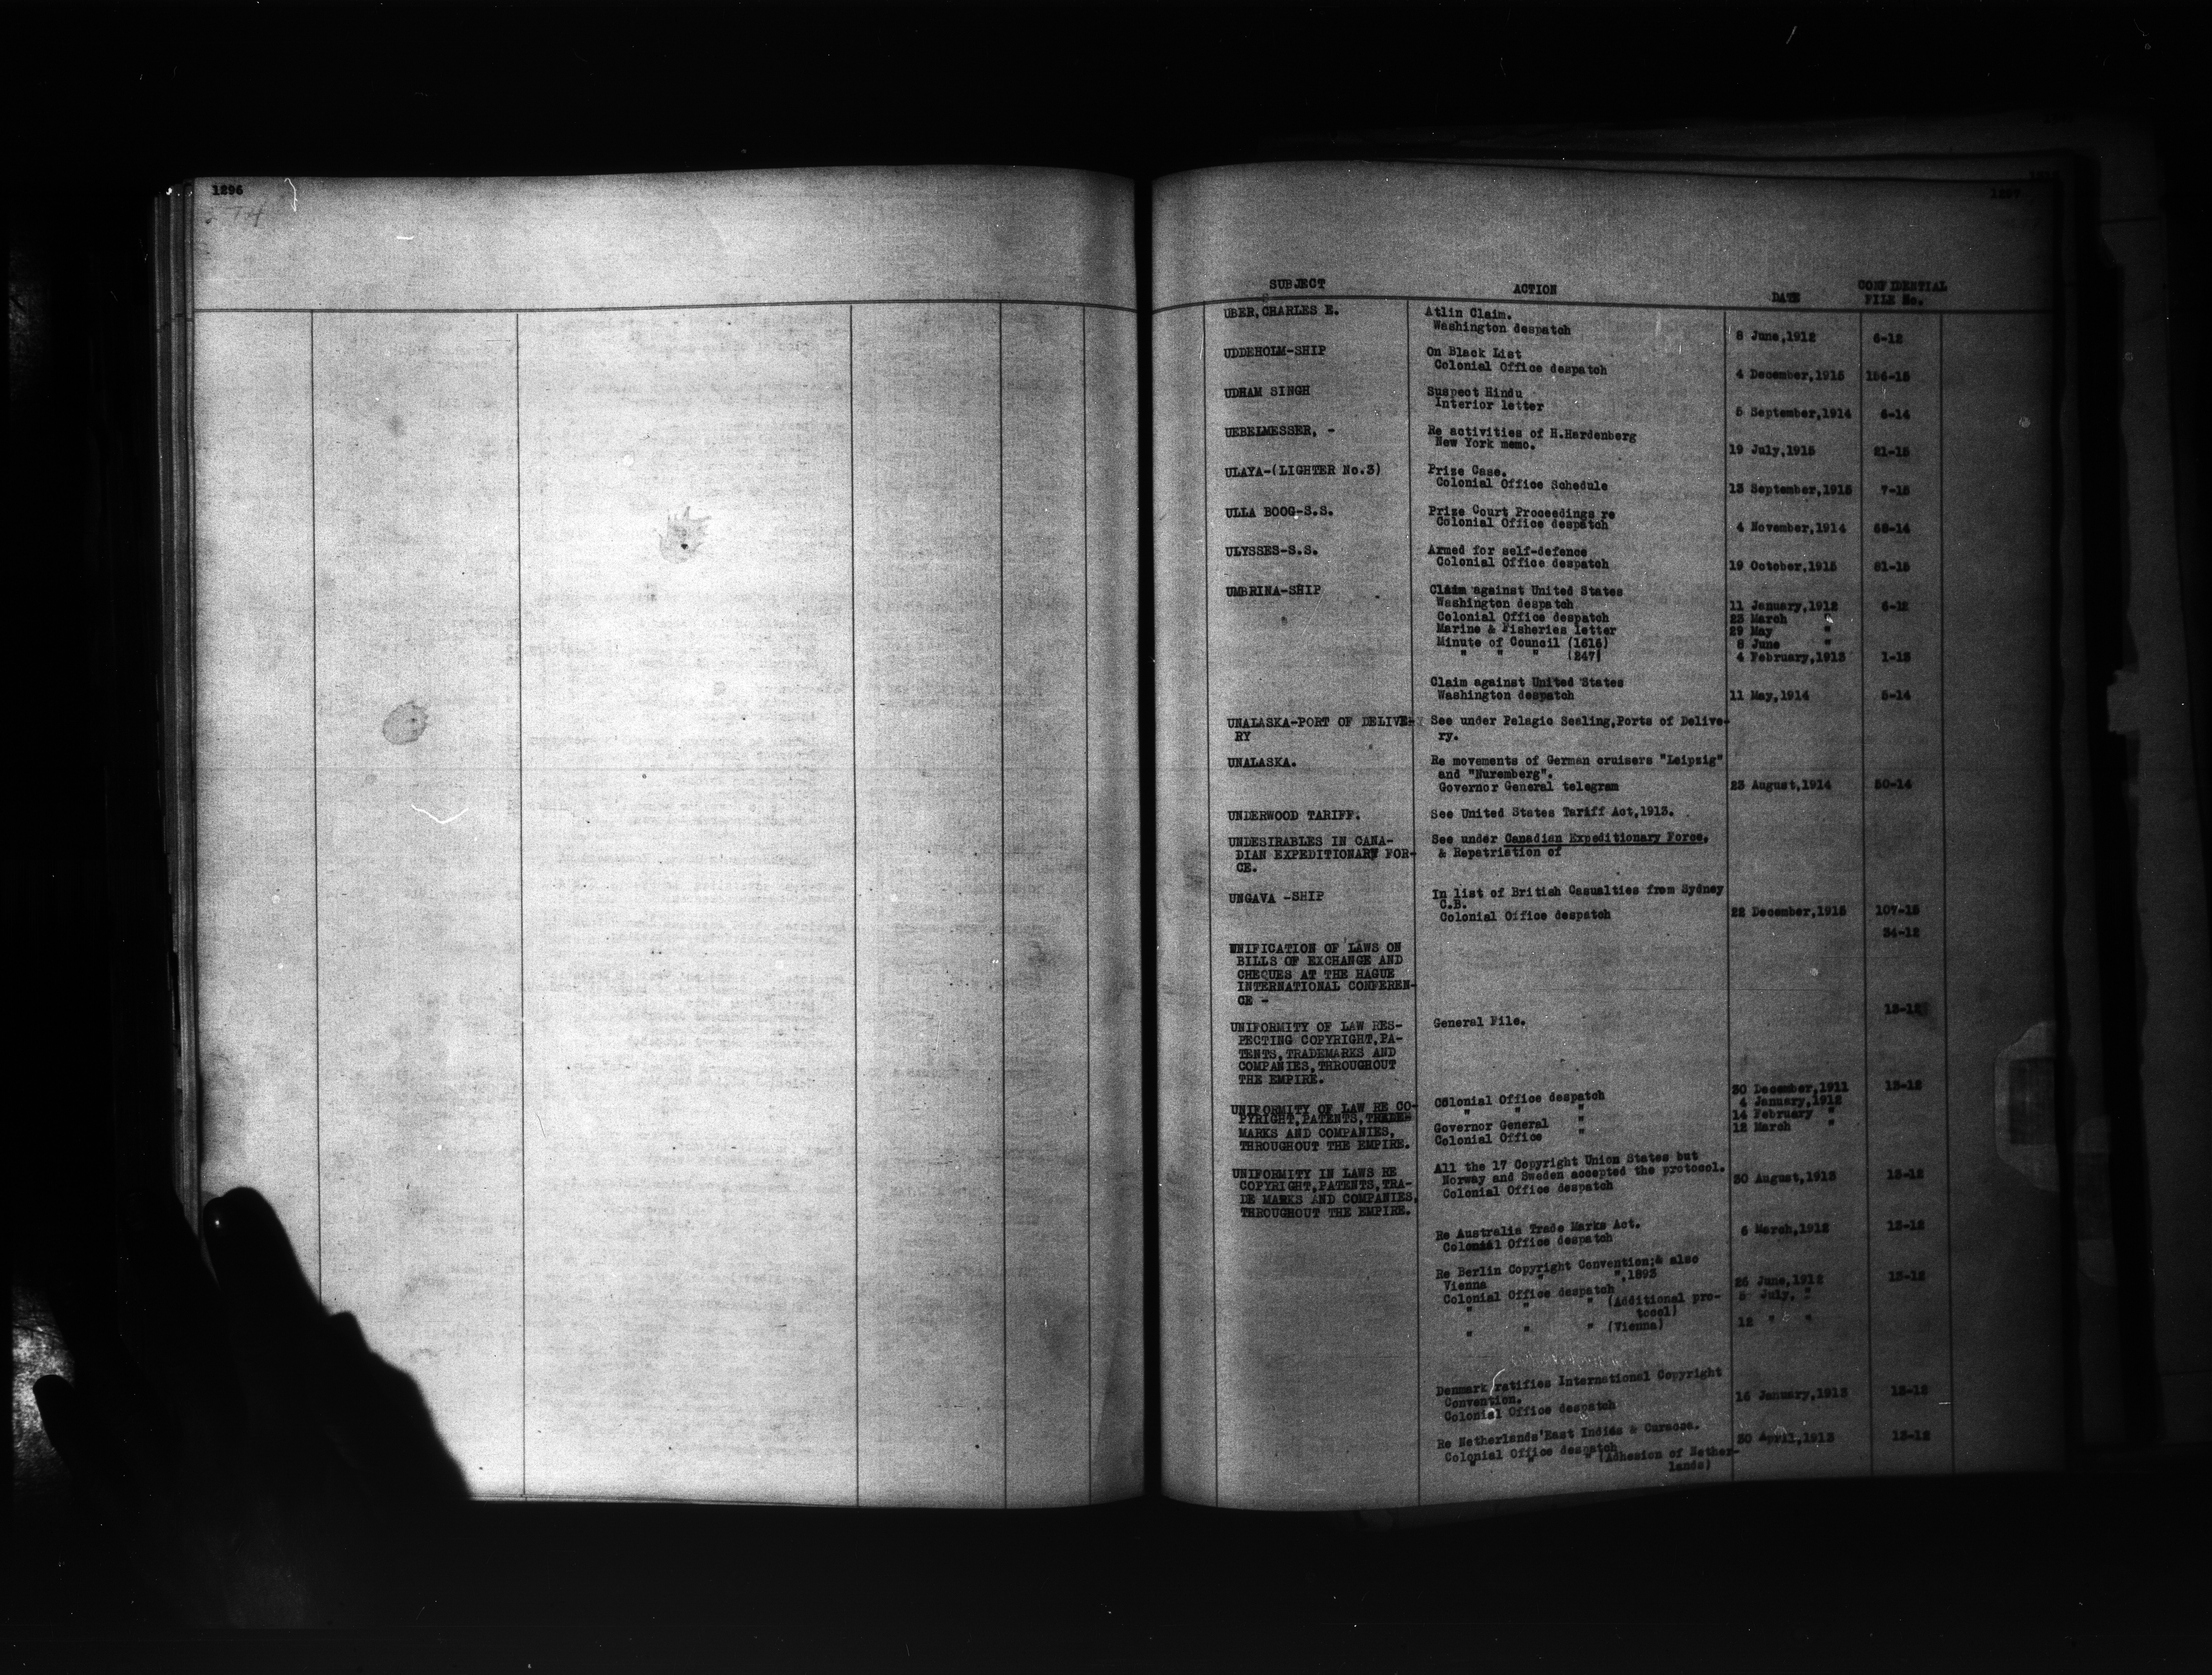 1296
1297
SUBJECT ACTION DATE CONFIDENTIAL FILE No.
UBER, CHARLES E. Atlin Claim.
Washington despatch 8 June,1912 6-12
UDDEHOLM-SHIP On Black List
Colonial Office despatch 4 December,1915 156-15
UDHAM SINGH Suspect Hindu
Interior letter 5 September,1914 6-14
UEBELMESSER, - Re activities of H.Hardenberg
New York memo. 19 July,1915 21-15
ULAYA-(LIGHTER No.3) Prize Case.
Colonial Office Schedule 13 September,1915 7-15
ULLA BOOG-S.S. Prize Court Proceedings re
Colonial Office despatch 4 November,1914 68-14
ULYSSES-S.S. Armed for self-defence
Colonial Office despatch 19 October,1915 81-15
UMBRINA-SHIP Claim against United States
Washington despatch 11 January,1912 6-12
Colonial Office despatch 23 March "
Marine & Fisheries letter 29 May "
Minute of Council (1616) 8 June "
" " " (247) 4 February,1913 1-13
Claim against United States
Washington despatch 11 May,1914 5-14
UNALASKA-PORT OF DELIVE- See under Pelagic Sealing,Ports of Delive-
RY ry.
UNALASKA. Re movements of German cruisers "Leipzig"
and "Nuremberg".
Governor General telegram 23 August,1914 50-14
UNDERWOOD TARIFF. See United States Tariff Act,1913.
UNDESIRABLES IN CANA- See under Canadian Expeditionary Force,
DIAN EXPEDITIONARY FOR- & Repatriation of
CE.
UNGAVA -SHIP In list of British Casualties from Sydney
C.B.
Colonial Office despatch 22 December,1915 107-15
34-12
UNIFICATION OF LAWS ON
BILLS OF EXCHANGE AND
CHEQUES AT THE HAGUE
INTERNATIONAL CONFEREN-
CE -
13-12
UNIFORMITY OF LAW RES- General File.
PECTING COPYRIGHT,PA-
TENTS,TRADEMARKS AND
COMPANIES,THROUGHOUT
THE EMPIRE.
UNIFORMITY OF LAW RE CO- Colonial Office despatch 30 December,1911 13-12
PYRIGHT,PATENTS,TRADE " " " 4 January,1912
MARKS AND COMPANIES, Governor General " 14 February "
THROUGHOUT THE EMPIRE. Colonial Office " 12 March "
UNIFORMITY IN LAWS RE All the 17 Copyright Union States but
COPYRIGHT,PATENTS,TRA- Norway and Sweden accepted the protocol.
DE MARKS AND COMPANIES, Colonial Office despatch 30 August,1913 13-12
THROUGHOUT THE EMPIRE.
Re Australia Trade Marks Act.
Colonial Office despatch 6 March,1912 13-12
Re Berlin Copyright Convention;& also
Vienna " ",1893
Colonial Office despatch 26 June,1912 13-12
" " " (Additional pro- 5 July, "
tocol)
" " " (Vienna) 12 " "
Denmark ratifies International Copyright
Convention.
Colonial Office despatch 16 January,1913 13-12
Re Netherlands'East Indies & Curacoa.
Colonial Office despatch 30 April,1913 13-12
" " " (Adhesion of Nether-
lands)